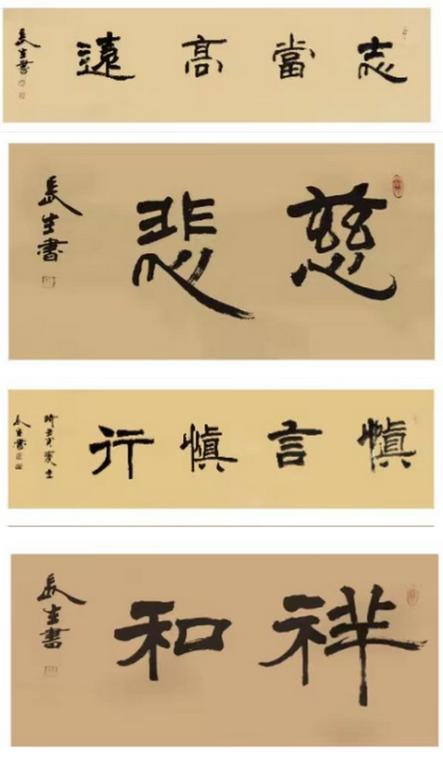 志當高遠
長生書
慈悲
長生書
慎言慎行
長生書
祥和
長生書